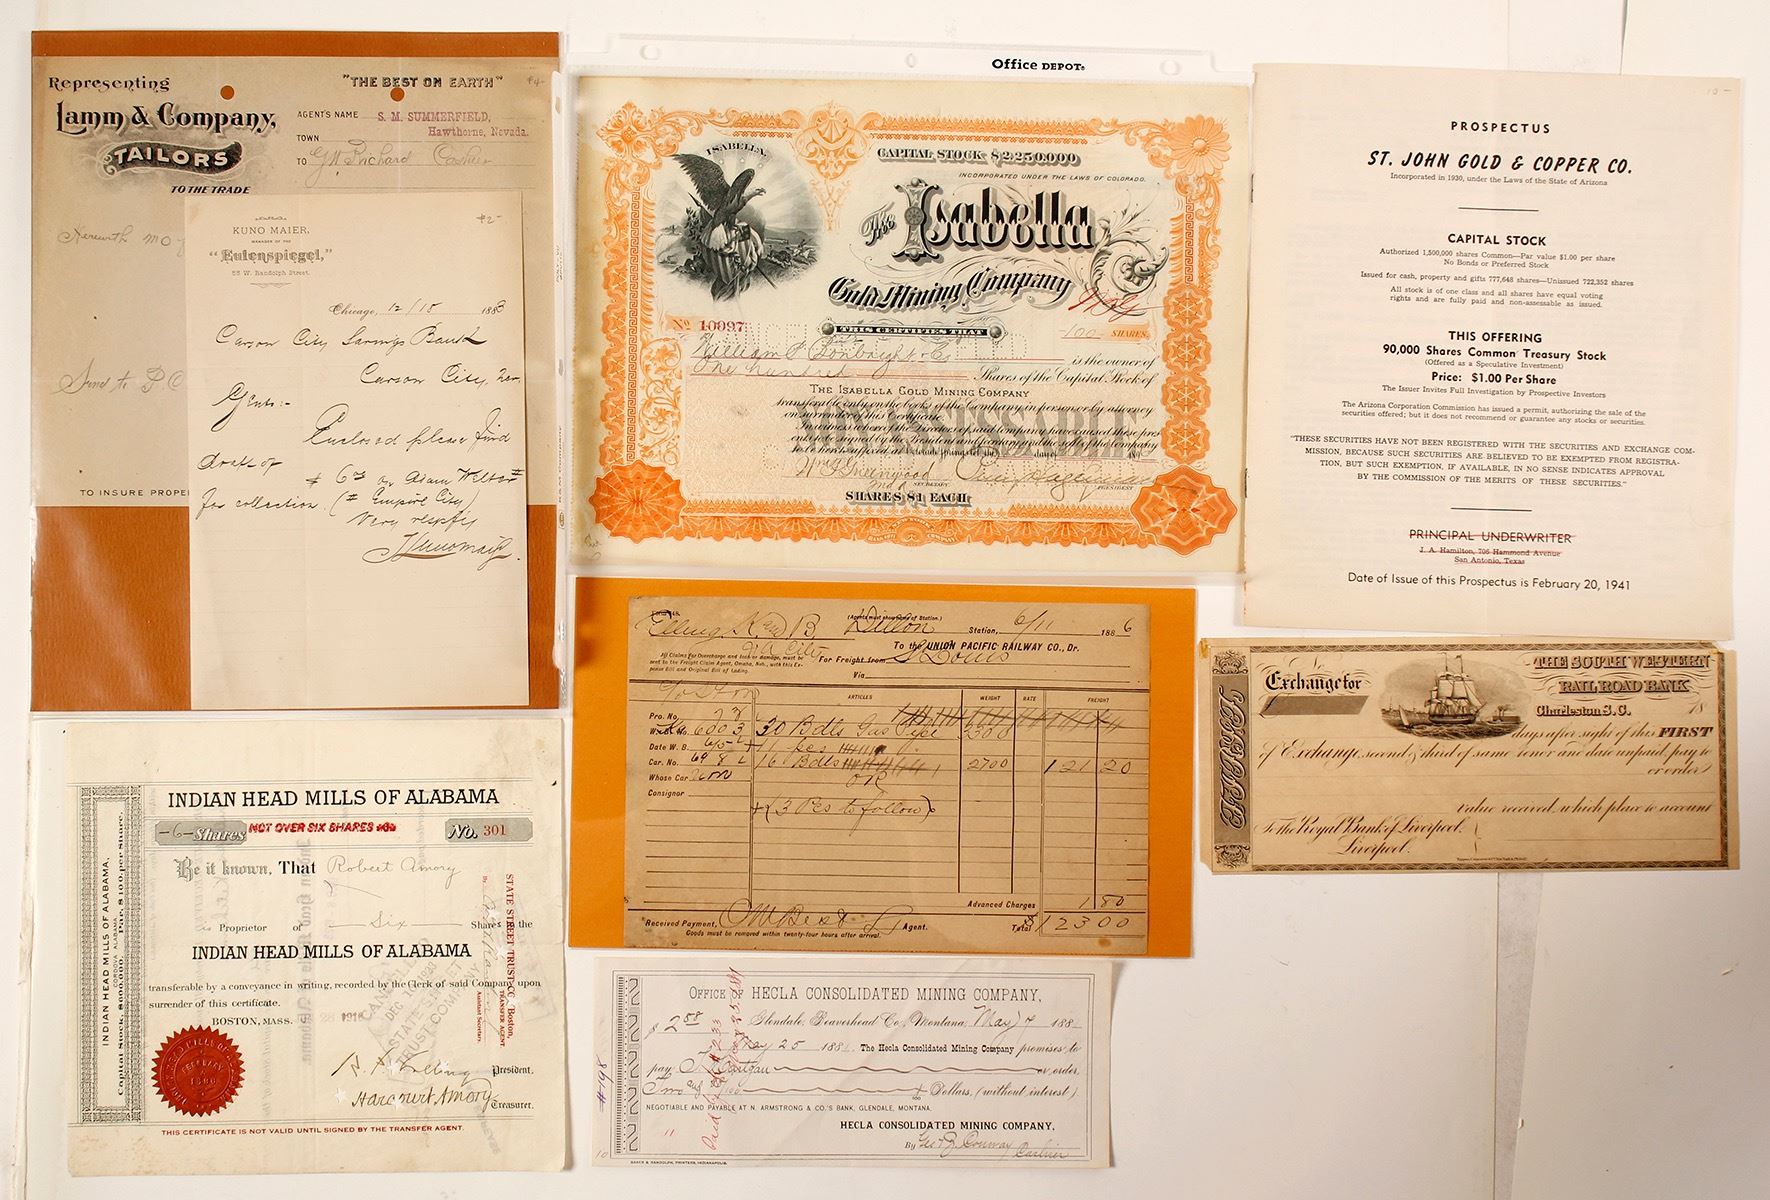 Representing
"THE BEST ON EARTH"
Lamm & Company,
TAILORS
TO THE TRADE
AGENT'S NAME S. M. SUMMERFIELD,
Hawthorne, Nevada.
TOWN
TO Cashier
Herewith M O
Send to P.O
TO INSURE PROPE
KUNO MAIER,
MANAGER OF THE
"Eulenspiegel,"
55 W. Randolph Street.
$2-
Chicago, 12/15 1888
Carson City Savings Bank
Carson City, Nev.
Gents:-
Enclosed please find
draft of
$ 6 on Adam
for collection. (# Empire City)
Very respfly
Office DEPOT
ISABELLA.
CAPITAL STOCK $2,250,000
INCORPORATED UNDER THE LAWS OF COLORADO.
The Isabella
Gold Mining Company
No 10097
THIS CERTIFIES THAT
-100- SHARES.
William P. Bonbright & Co is the owner of
One hundred Shares of the Capital Stock of
THE ISABELLA GOLD MINING COMPANY
transferable only on the books of the Company in person or by attorney
on surrender of this Certificate.
In witness whereof the Directors of said Company have caused these pres
ents to be signed by the President and Secretary and the seal of the Company
to be hereto affixed at Colorado Springs the day of 189
SECRETARY
PRESIDENT
SHARES $1 EACH
PROSPECTUS
ST. JOHN GOLD & COPPER CO.
Incorporated in 1930, under the Laws of the State of Arizona
CAPITAL STOCK
Authorized 1,500,000 shares Common—Par value $1.00 per share
No Bonds or Preferred Stock
Issued for cash, property and gifts 777,648 shares—Unissued 722,352 shares
All stock is of one class and all shares have equal voting
rights and are fully paid and non-assessable as issued.
THIS OFFERING
90,000 Shares Common Treasury Stock
(Offered as a Speculative Investment)
Price: $1.00 Per Share
The Issuer Invites Full Investigation by Prospective Investors
The Arizona Corporation Commission has issued a permit, authorizing the sale of the
securities offered; but it does not recommend or guarantee any stocks or securities.
"THESE SECURITIES HAVE NOT BEEN REGISTERED WITH THE SECURITIES AND EXCHANGE COM-
MISSION, BECAUSE SUCH SECURITIES ARE BELIEVED TO BE EXEMPTED FROM REGISTRA-
TION, BUT SUCH EXEMPTION, IF AVAILABLE, IN NO SENSE INDICATES APPROVAL
BY THE COMMISSION OF THE MERITS OF THESE SECURITIES."
PRINCIPAL UNDERWRITER
J. A. Hamilton, 706 Hammond Avenue
San Antonio, Texas
Date of Issue of this Prospectus is February 20, 1941
(Agents must show Name of Station.)
Elling K and B Dillon Station, 6/11 1886
To the UNION PACIFIC RAILWAY CO., Dr.
All Claims For Overcharge and loss or damage, must be
sent to the Freight Claim Agent, Omaha, Neb., with this Ex-
pense Bill and Original Bill of Lading.
For Freight from St Louis
Via
ARTICLES WEIGHT RATE FREIGHT
Pro. No.
W. B. No. 6003 30 Bdls Gas Pipe 3300
Date W. B. 6/5 11 pcs
Car. No. 6982 16 Bdls 2700 121 20
Whose Car
OR
Consignor
+ (3 Pcs to follow)
Advanced Charges 1 80
Received Payment, Agent. Total $123 00
Goods must be removed within twenty-four hours after arrival.
No
Exchange for
THE SOUTH WESTERN
RAIL ROAD BANK
Charleston S.C. 18
days after sight of this FIRST
of Exchange, second & third of same tenor and date unpaid, pay to
or order
value received, which place to account
To the Royal Bank of Liverpool.
Liverpool.
INDIAN HEAD MILLS OF ALABAMA
-6- Shares NOT OVER SIX SHARES No. 301
Be it known, That Robert Amory
Proprietor of Six Shares in the
INDIAN HEAD MILLS OF ALABAMA
transferable by a conveyance in writing, recorded by the Clerk of said Company upon
surrender of this certificate.
BOSTON, MASS. 1918
President.
Harcourt Amory
Treasurer.
THIS CERTIFICATE IS NOT VALID UNTIL SIGNED BY THE TRANSFER AGENT.
INDIAN HEAD MILLS OF ALABAMA,
CORDOVA ALABAMA.
Capital Stock, $600,000. Par, $100, per Share.
STATE STREET TRUST CO., Boston,
TRANSFER AGENT
Assistant Secretary.
CANCELLED
DEC 10 1920
STATE STREET
TRUST COMPANY
FEBRUARY
OFFICE OF HECLA CONSOLIDATED MINING COMPANY,
$ 2.58 Glendale, Beaverhead Co., Montana, May 7 188
May 25 188 The Hecla Consolidated Mining Company promises to
pay or order,
Two and /100 Dollars, (without interest)
NEGOTIABLE AND PAYABLE AT N. ARMSTRONG & CO.'S BANK, GLENDALE, MONTANA.
HECLA CONSOLIDATED MINING COMPANY,
By Geo. B. Conway Cashier
BAKER & RANDOLPH, PRINTERS, INDIANAPOLIS.
#198
11
10